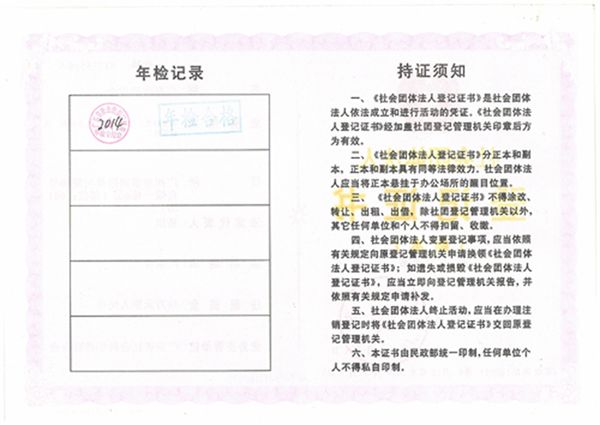 年检记录
2014
年检合格
持证须知
一、《社会团体法人登记证书》是社会团体
法人依法成立和进行活动的凭证,《社会团体法
人登记证书》经加盖社团登记管理机关印章后方
为有效。
二、《社会团体法人登记证书》分正本和副
本,正本和副本具有同等法律效力。社会团体法
人应当将正本悬挂于办公场所的醒目位置。
三、《社会团体法人登记证书》不得涂改、
转让、出租、出借,除社团登记管理机关以外,
其它任何单位和个人不得扣留、收缴。
四、社会团体法人变更登记事项,应当依照
有关规定向原登记管理机关申请换领《社会团体
法人登记证书》;如遗失或损毁《社会团体法人登
记证书》,应当立即向登记管理机关报告,并
依照有关规定申请补发。
五、社会团体法人终止活动,应当在办理注
销登记时将《社会团体法人登记证书》交回原登
记管理机关。
六、本证书由民政部统一印制,任何单位个
人不得私自印制。